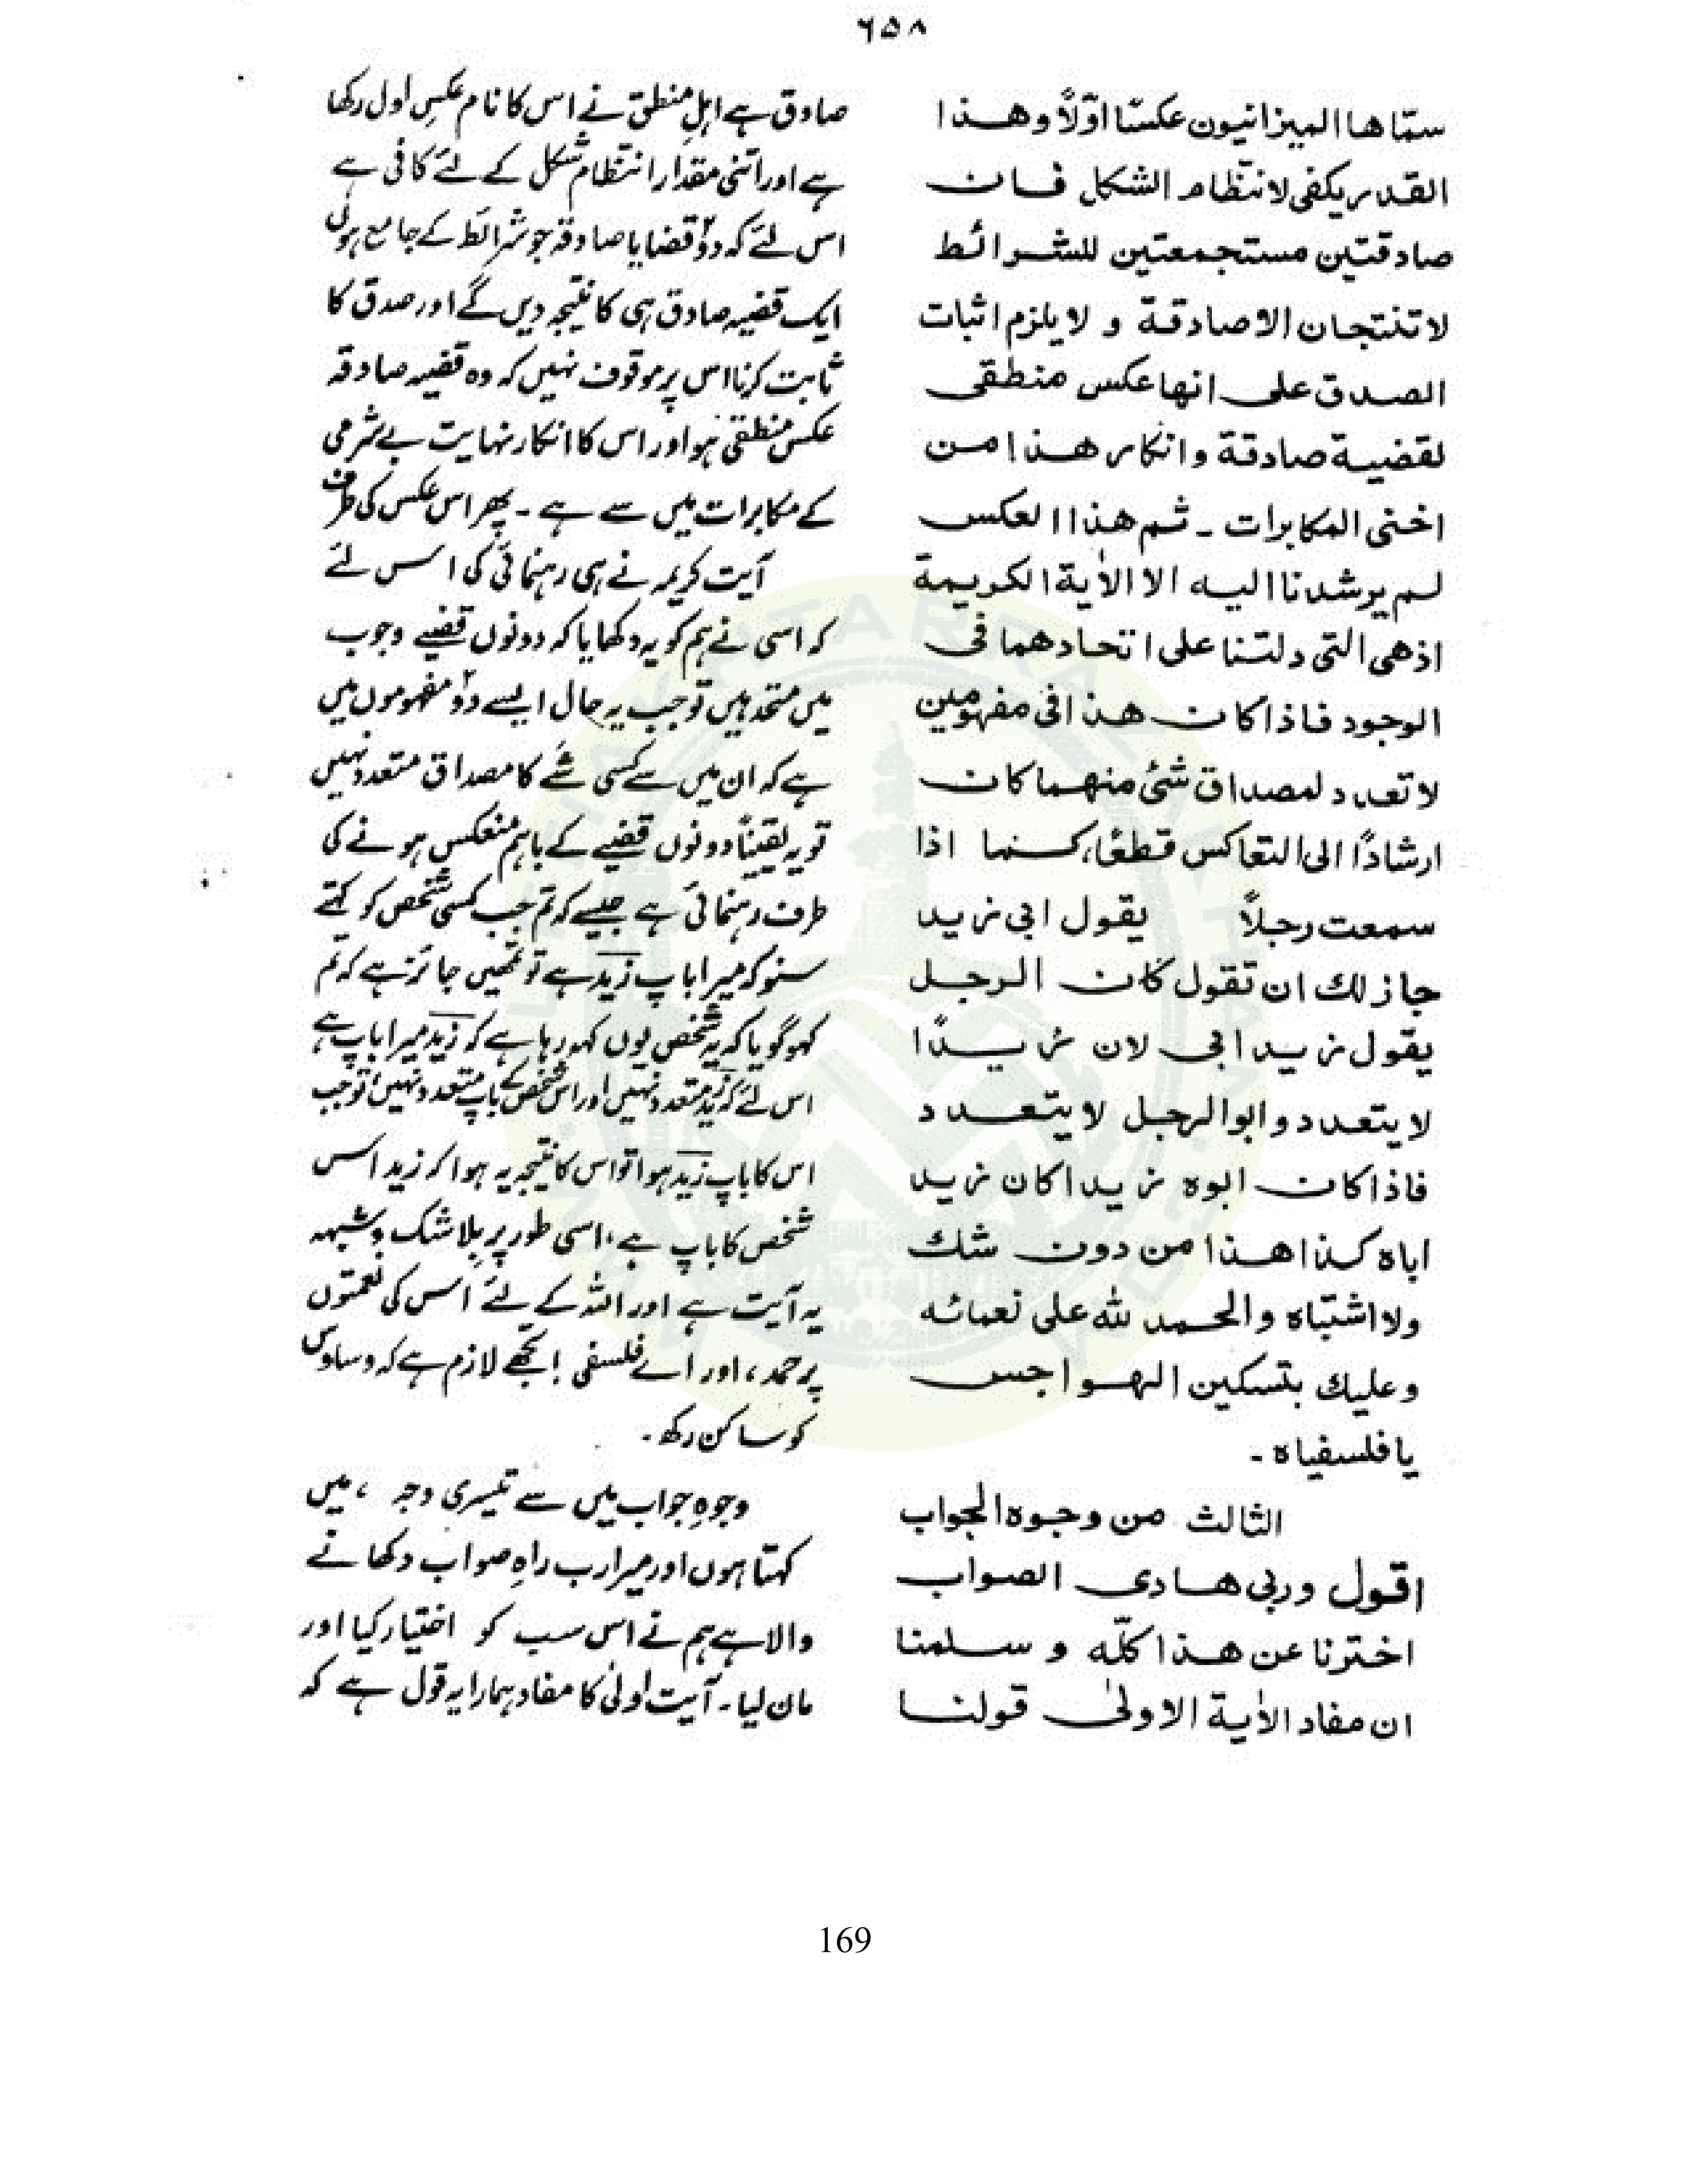 ٦٥٨
سمّاها الميزانيون عكسًا اوّلاً وهذا
القدر يكفى لانتظام الشكل فان
صادقتين مستجمعتين للشرائط
لا تنتجان الا صادقة و لا يلزم اثبات
الصدق على انها عكس منطقى
لقضية صادقة وانكار هذا من
اخنى المكابرات ۔ ثم هذا العكس
لم يرشدنا اليه الا الأية الكريمة
اذ هى التى دلتنا على اتحادهما فى
الوجود فاذا كان هذا فى مفهومين
لا تعدد لمصداق شئ منهما كان
ارشادًا الى التعاكس قطعًا، كما اذا
سمعت رجلاً يقول ابى زيد
جاز لك ان تقول كان الرجل
يقول زيد ابى لان زيدًا
لا يتعدد و ابو الرجل لا يتعدد
فاذا كان ابوه زيدا كان زيد
اباه كذا هذا من دون شك
ولا اشتباه والحمد لله على نعمائه
وعليك بتسكين الهواجس
يا فلسفياه ۔
الثالث من وجوه الجواب
اقول وربى هادى الصواب
اخترنا عن هذا كلّه و سلمنا
ان مفاد الأية الاولىٰ قولنا
صادق ہے اہلِ منطق نے اس کا نام عکسِ اول رکھا
ہے اور اتنی مقدار انتظام شکل کے لئے کافی ہے
اس لئے کہ دو قضایا صادقہ جو شرائط کے جامع ہوں
ایک قضیہ صادق ہی کا نتیجہ دیں گے اور صدق کا
ثابت کرنا اس پر موقوف نہیں کہ وہ قضیہ صادقہ
عکس منطقی ہو اور اس کا انکار نہایت بے شرمی
کے مکابرات میں سے ہے ۔ پھر اس عکس کی طرف
آیت کریمہ نے ہی رہنمائی کی اس لئے
کہ اسی نے ہم کو یہ دکھایا کہ دونوں قضیے وجوب
میں متحد ہیں تو جب یہ حال ایسے دو مفہوموں میں
ہے کہ ان میں سے کسی شے کا مصداق متعدد نہیں
تو یہ یقیناً دونوں قضیے کے باہم منعکس ہونے کی
طرف رہنمائی ہے جیسے کہ تم جب کسی شخص کو کہتے
سنو کہ میرا باپ زید ہے تو تمھیں جائز ہے کہ تم
کہو گویا کہ یہ شخص یوں کہہ رہا ہے کہ زید میرا باپ ہے
اس لئے کہ زید متعدد نہیں اور اس شخص کے باپ متعدد نہیں تو جب
اس کا باپ زید ہوا تو اس کا نتیجہ یہ ہوا کہ زید اس
شخص کا باپ ہے، اسی طور پر بلا شک و شبہہ
یہ آیت ہے اور اللہ کے لئے اس کی نعمتوں
پر حمد، اور اے فلسفی! تجھے لازم ہے کہ وساوس
کو ساکن رکھ ۔
وجوہِ جواب میں سے تیسری وجہ ، میں
کہتا ہوں اور میرا رب راہِ صواب دکھانے
والا ہے ہم نے اس سب کو اختیار کیا اور
مان لیا ۔ آیت اولیٰ کا مفاد ہمارا یہ قول ہے کہ
169